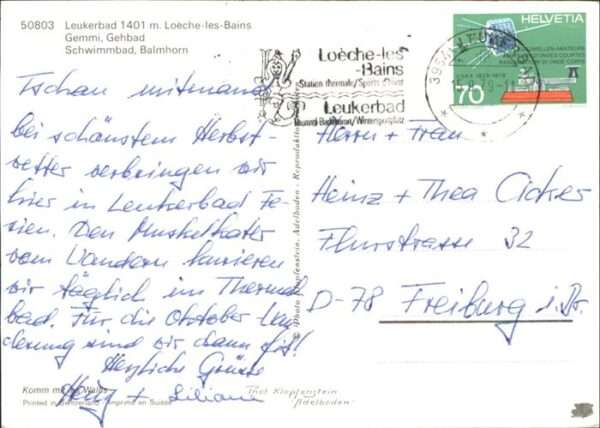 50803 Leukerbad 1401 m. Loèche-les-Bains
Gemmi, Gehbad
Schwimmbad, Balmhorn
Tschau mitenand
bei schönstem Herbst-
wetter verbringen wir
hier in Leukerbad Fe-
rien. Den Muskelkater
vom Wandern kurieren
wir täglich im Thermal-
bad. Für die Oktober Wan-
derung sind wir dann fit!
Herzliche Grüsse
Heinz + Liliane
Komm mit ins Wallis
Printed in Switzerland - Imprimé en Suisse
Thor Klopfenstein
Adelboden
© Photo Klopfenstein, Adelboden - Reproduktion
Loèche-les-
-Bains
Station thermale/Sports
Leukerbad
Thermal Badekuren/Wintersportplatz
HELVETIA
70
Herrn + Frau
Heinz + Thea Acker
Flurstrasse 32
D-78 Freiburg i. Br.